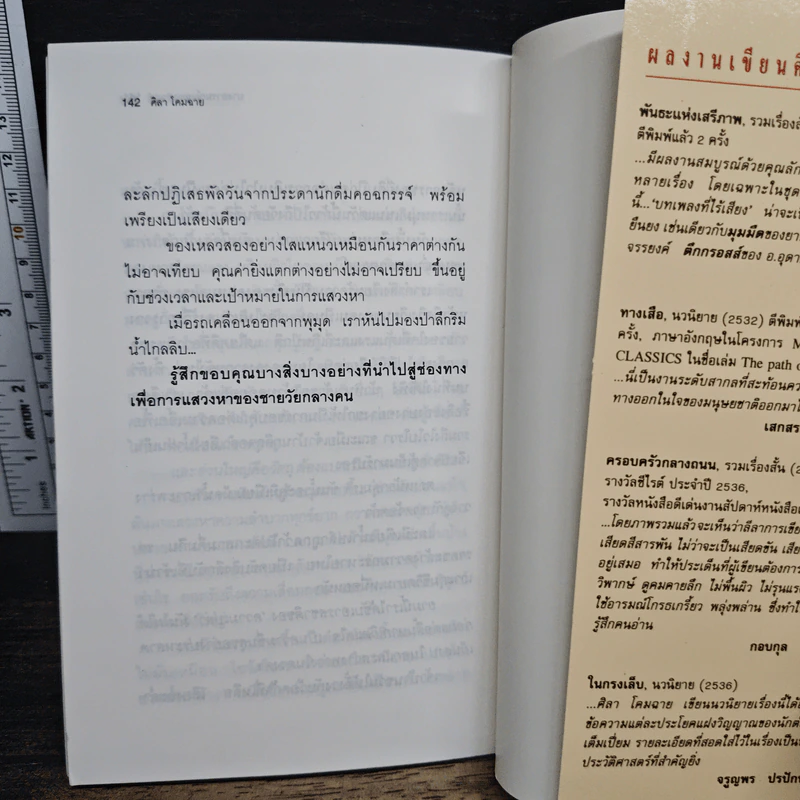 142 ศิลา โคมฉาย
ละลักปฏิเสธพัลวันจากประดานักดื่มคอฉกรรจ์ พร้อม
เพรียงเป็นเสียงเดียว
ของเหลวสองอย่างใสแหนวเหมือนกันราคาต่างกัน
ไม่อาจเทียบ คุณค่ายิ่งแตกต่างอย่างไม่อาจเปรียบ ขึ้นอยู่
กับช่วงเวลาและเป้าหมายในการแสวงหา
เมื่อรถเคลื่อนออกจากพุมุด เราหันไปมองป่าลึกริม
น้ำไกลลิบ...
รู้สึกขอบคุณบางสิ่งบางอย่างที่นำไปสู่ช่องทาง
เพื่อการแสวงหาของชายวัยกลางคน
ผลงานเขียนศิ
พันธะแห่งเสรีภาพ, รวมเรื่องสั
ตีพิมพ์แล้ว 2 ครั้ง
...มีผลงานสมบูรณ์ด้วยคุณลัก
หลายเรื่อง โดยเฉพาะในชุด
นี้..."บทเพลงที่ไร้เสียง" น่าจะเ
ยืนยง เช่นเดียวกับมุมมืดของยา
จรรยงค์ ตึกกรอสส์ของ อ.อุดา
ทางเสือ, นวนิยาย (2532) ตีพิมพ์
ครั้ง, ภาษาอังกฤษในโครงการ M
CLASSICS ในชื่อเล่ม The path o
...นี่เป็นงานระดับสากลที่สะท้อนคว
ทางออกในใจของมนุษยชาติออกมาไ
เสกสร
ครอบครัวกลางถนน, รวมเรื่องสั้น (2
รางวัลซีไรต์ ประจำปี 2536,
รางวัลหนังสือดีเด่นงานสัปดาห์หนังสือแ
...โดยภาพรวมแล้วจะเห็นว่าลีลาการเขีย
เสียดสีสารพัน ไม่ว่าจะเป็นเสียดขัน เสีย
อยู่เสมอ ทำให้ประเด็นที่ผู้เขียนต้องการ
วิพากษ์ ดูคมคายลึก ไม่พื้นผิว ไม่รุนแร
ใช้อารมณ์โกรธเกรี้ยว พลุ่งพล่าน ซึ่งทำใ
รู้สึกคนอ่าน
กอบกุล
ในกรงเล็บ, นวนิยาย (2536)
...ศิลา โคมฉาย เขียนนวนิยายเรื่องนี้ได้
ข้อความแต่ละประโยคแฝงวิญญาณของนักต่
เต็มเปี่ยม รายละเอียดที่สอดใส่ไว้ในเรื่องเป็น
ประวัติศาสตร์ที่สำคัญยิ่ง
จรูญพร ปรปักษ